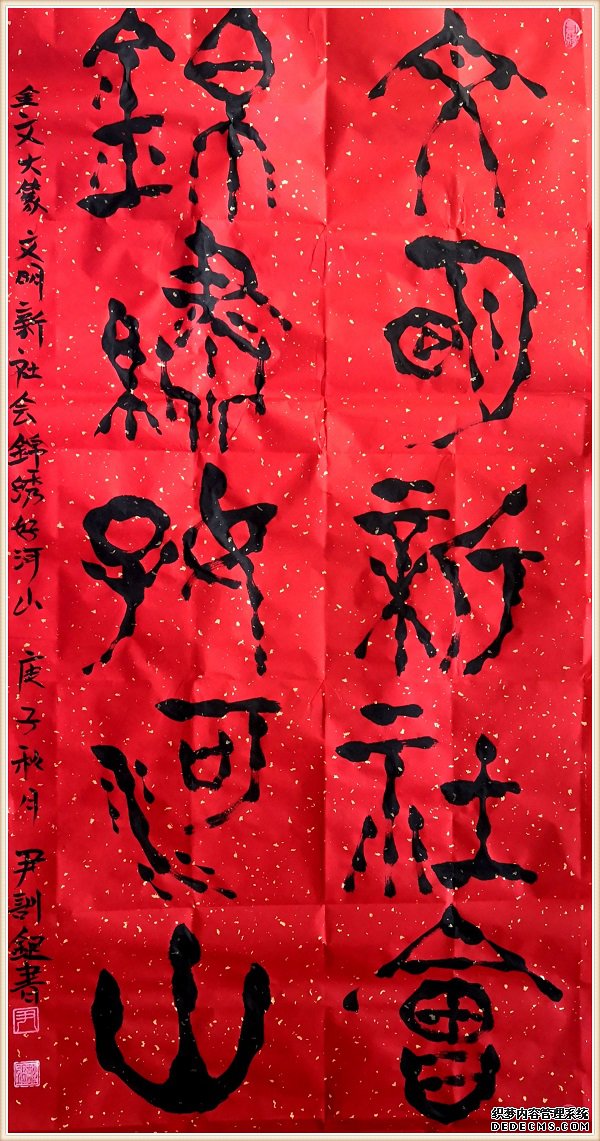 文明新社會
錦繡好河山
金文大篆 文明新社会錦绣好河山 庚子秋月 尹訓鉅書
尹
织梦内容管理系统
DEDECMS.COM